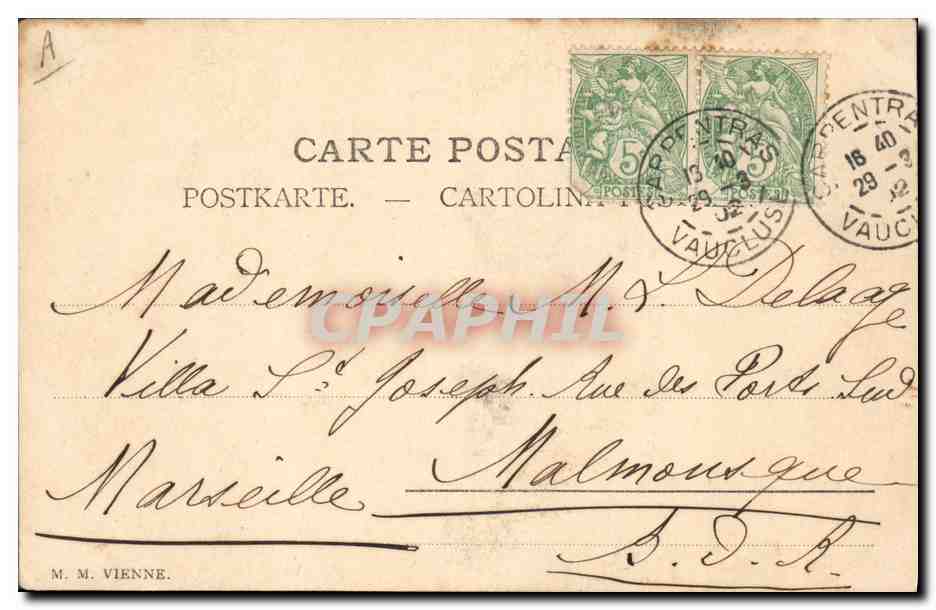 A
CARTE POSTA
POSTKARTE. — CARTOLINA
5 POSTES
CARPENTRAS
13 40
29 -3
02
VAUCLUSE
CARPENTRA
16 40
29 -3
02
VAUCL
CPAPHIL
Mademoiselle M. L. Delaage
Villa St Joseph. Rue des Ports Sud
Marseille Malmousque
B. D. R.
M. M. VIENNE.